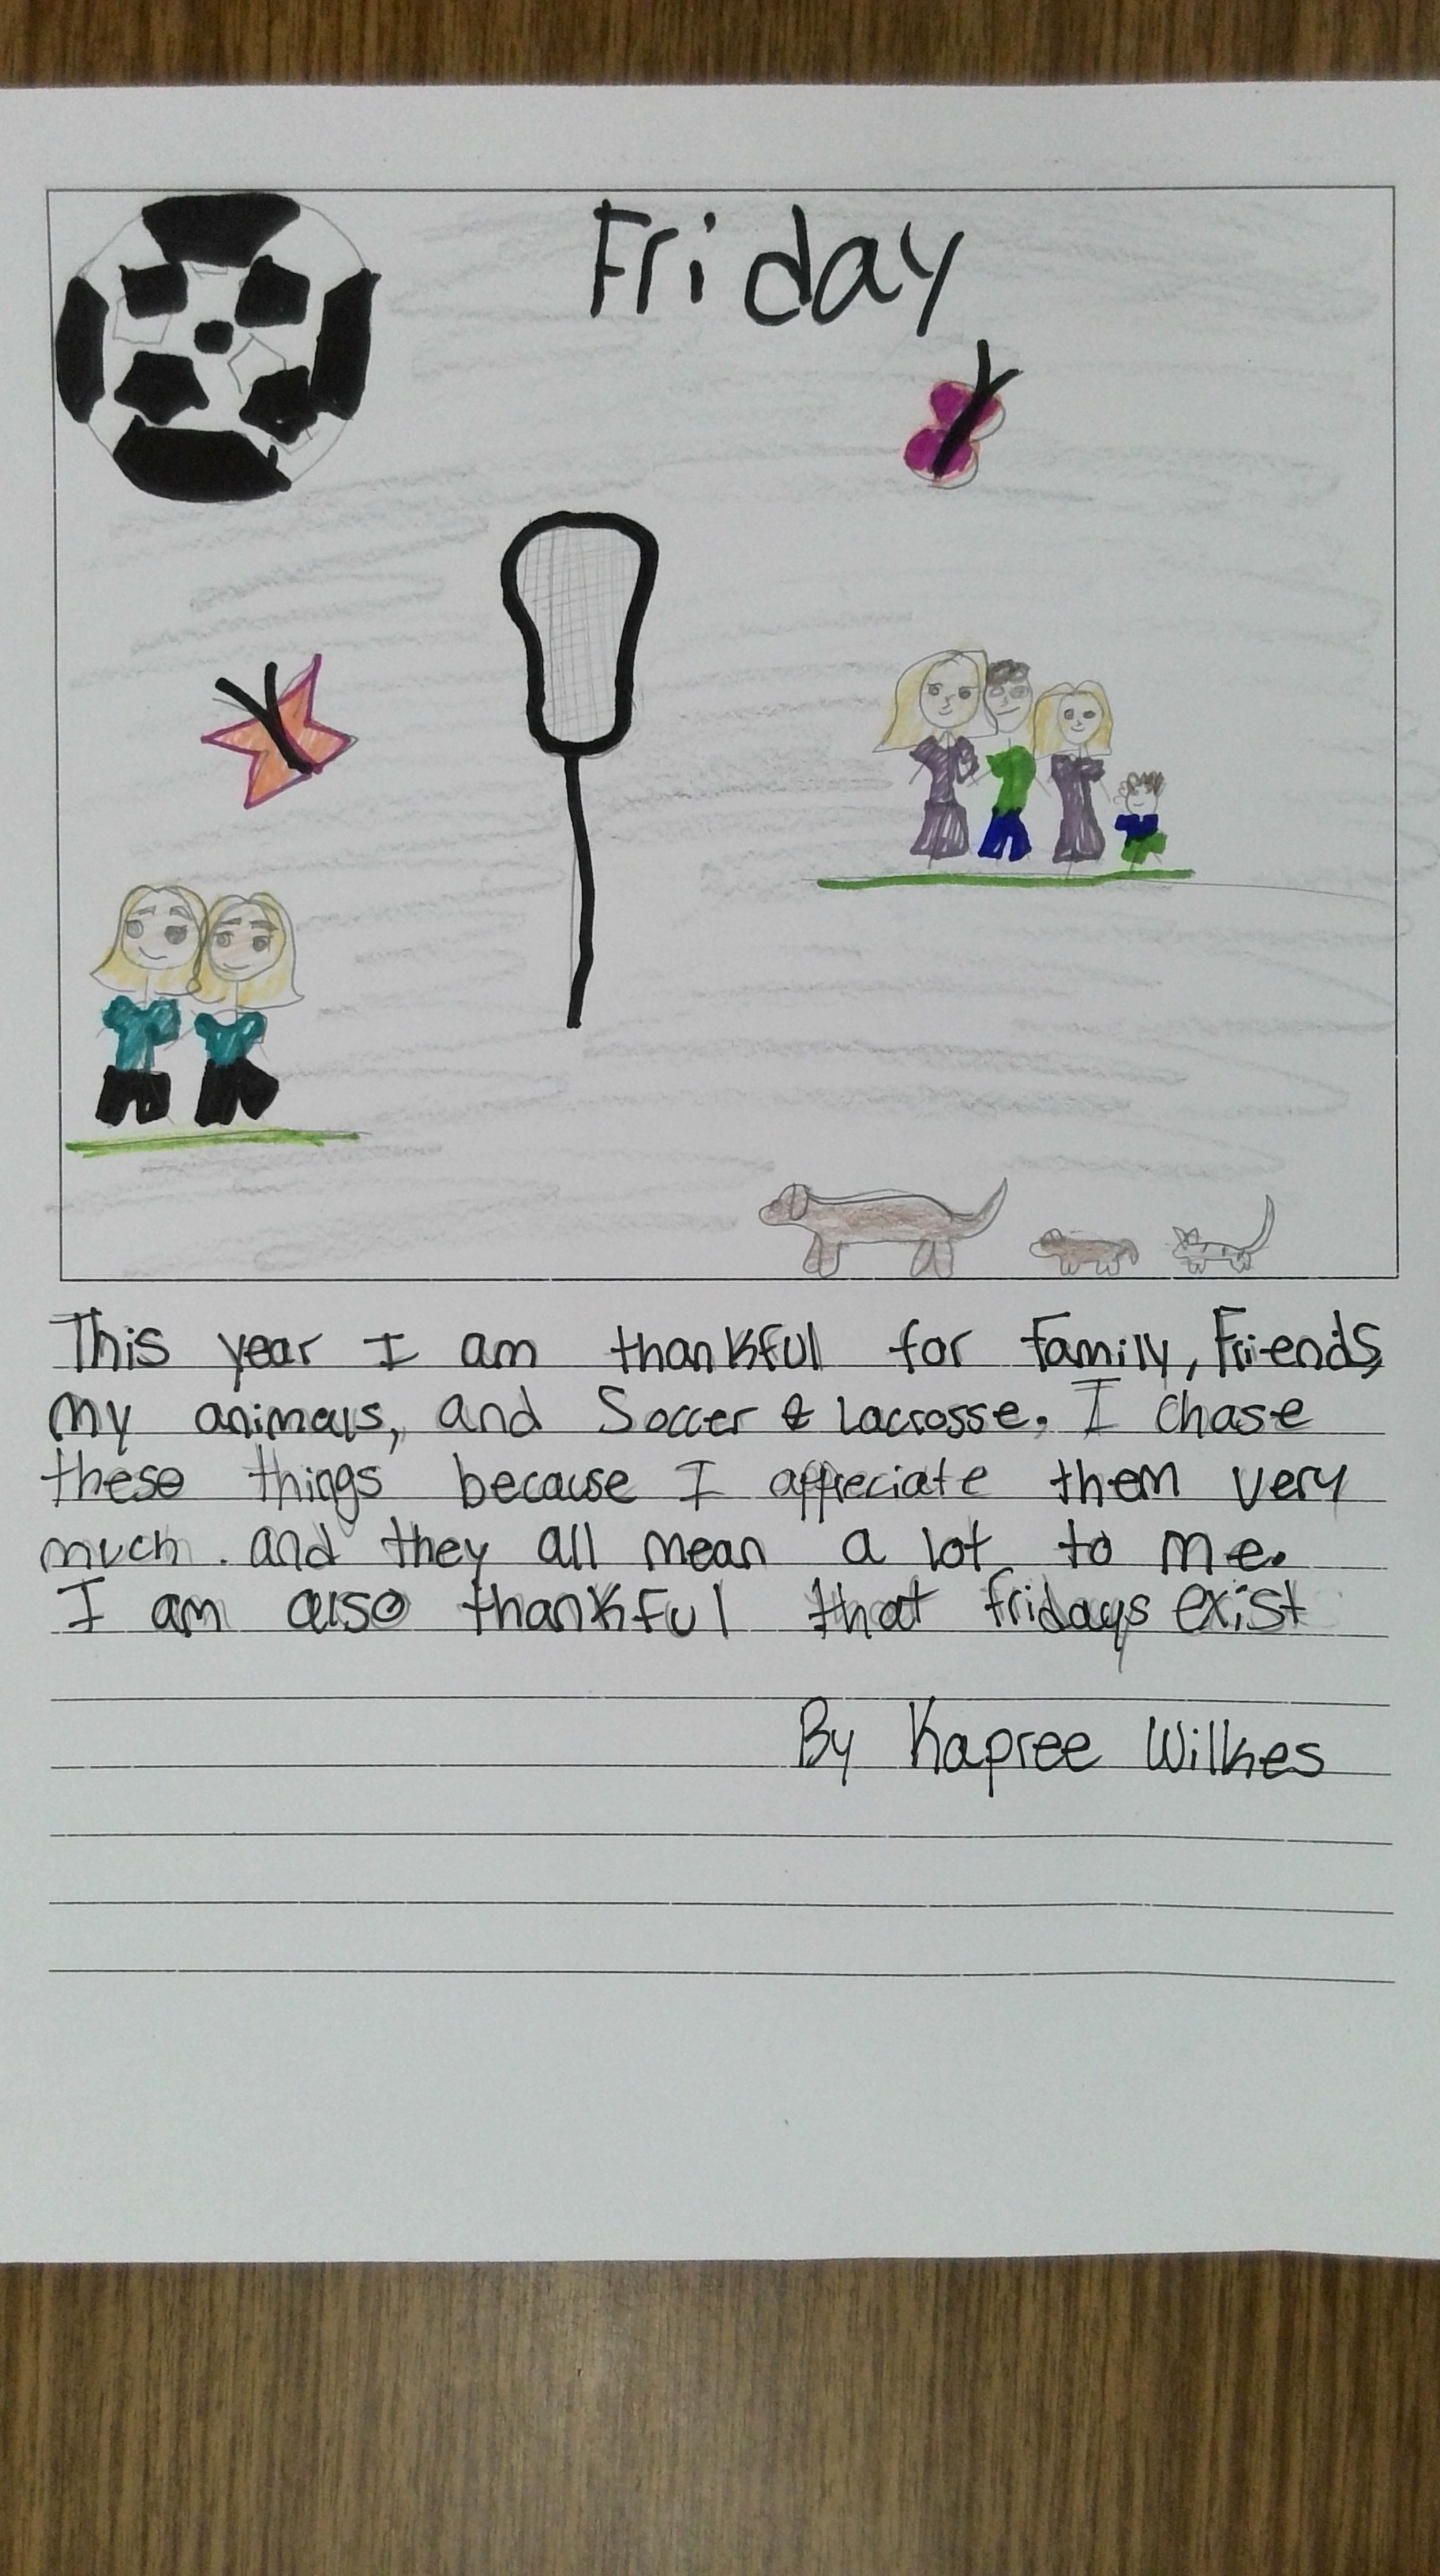 Friday
This year I am thankful for Family, Friends,
my animals, and Soccer & Lacrosse. I chose
these things because I appreciate them very
much. and they all mean a lot to me.
I am also thankful that fridays exist
By Kapree Wilkes